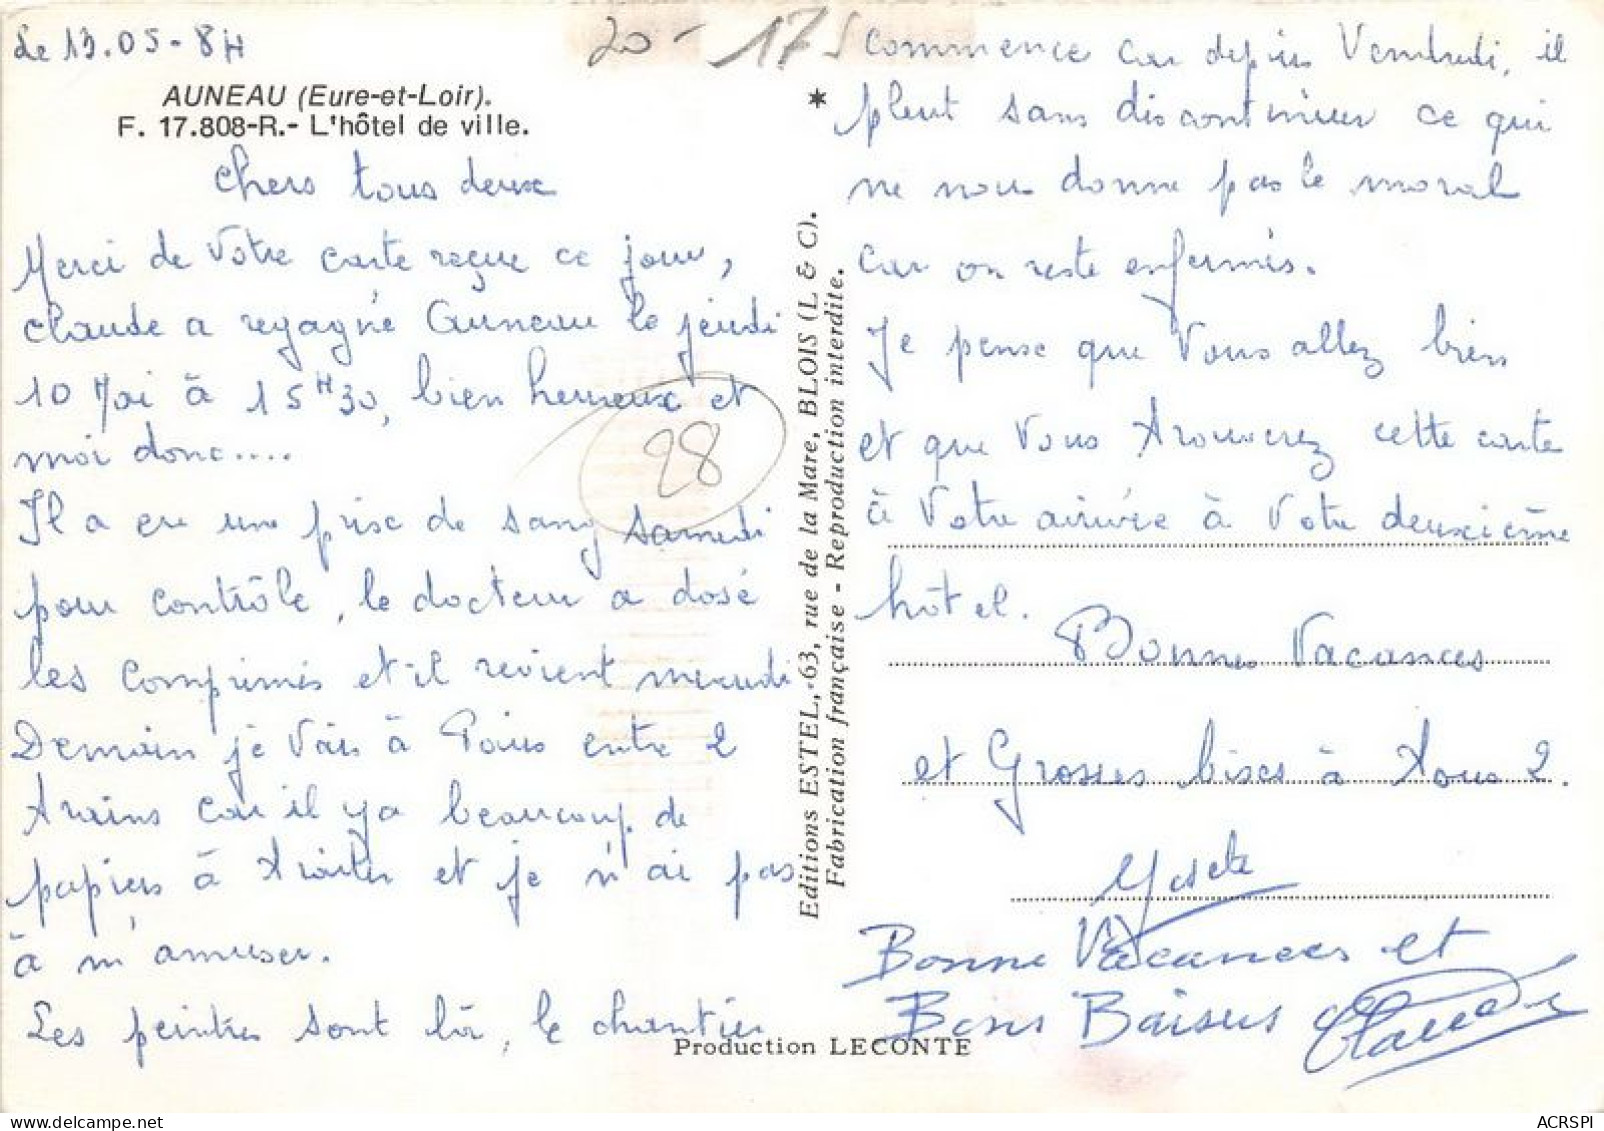 Le 13.05-84
20- 175
AUNEAU (Eure-et-Loir).
F. 17.808-R.- L'hôtel de ville.
Chers tous deux
Merci de votre carte reçue ce jour,
Claude a regagné Auneau le jeudi
10 Mai à 15H30, bien heureux et
moi donc....
Il a eu une prise de sang samedi
pour contrôle, le docteur a dosé
les comprimés et il revient mercredi
Demain je vais à Paris entre 2
trains car il y a beaucoup de
papiers à traiter et je n'ai pas
à m'amuser.
Les peintres sont là, le chantier
28
Editions ESTEL, 63, rue de la Mare, BLOIS (L & C).
Fabrication française - Reproduction interdite.
Production LECONTE
*
commence car depuis Vendredi, il
pleut sans discontinuer ce qui
ne nous donne pas le moral
car on reste enfermés.
Je pense que vous allez bien
et que vous trouverez cette carte
à votre arrivée à votre deuxième
hôtel.
Bonnes Vacances
et Grosses bises à tous 2.
Bonne Vacances et
Bons Baisers Claude
ACRSPI